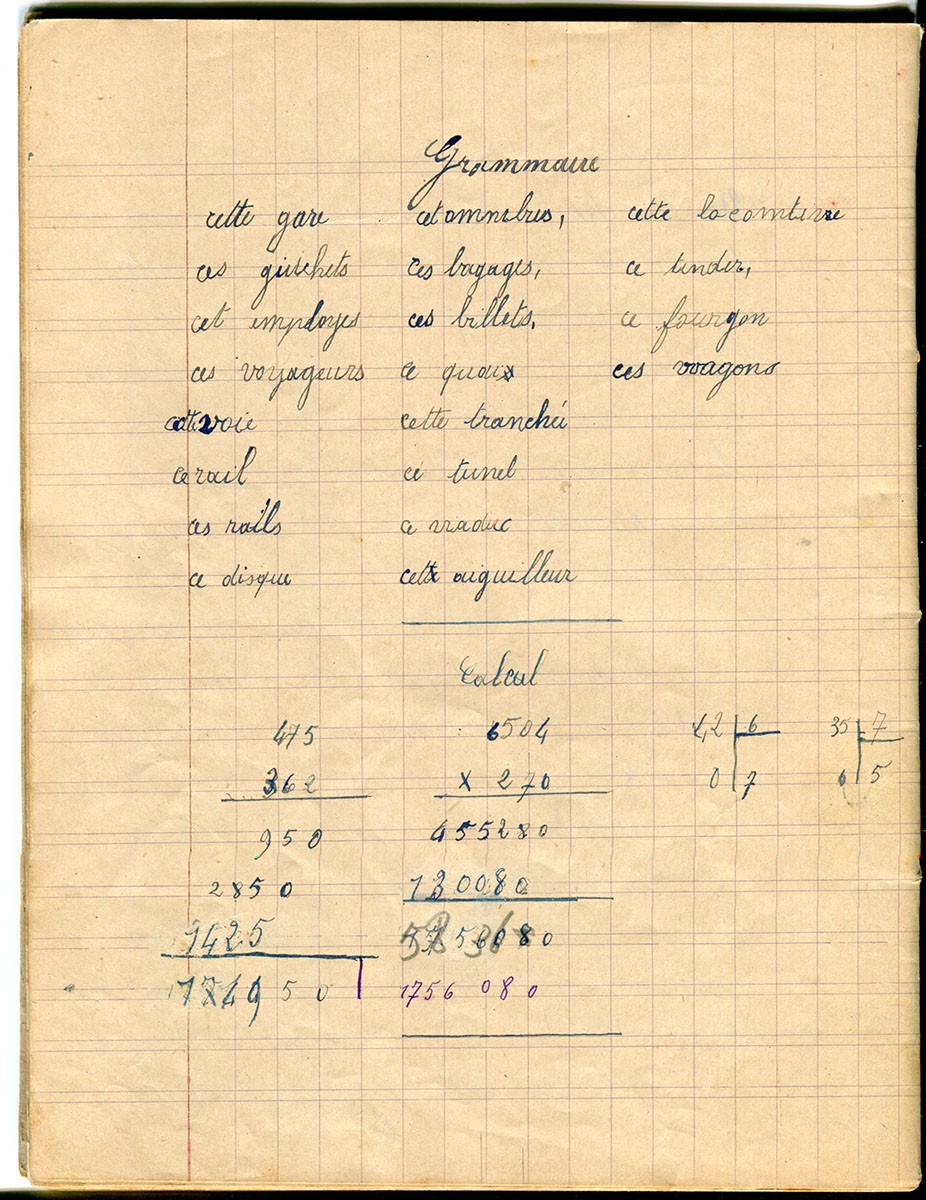 Grammaire
cette gare cet omnibus, cette locomtive
ces guichets ces bagages, ce tender,
cet employes ces billets, ce fourgon
ces voyageurs ce quai ces wagons
cette voie cette tranchée
ce rail ce tunel
ces rails ce viaduc
ce disque cet aiguilleur
Calcul
475 6504 42 6 35 7
362 x 270 0 7 0 5
950 455280
2850 130080
1425
50
1756 080